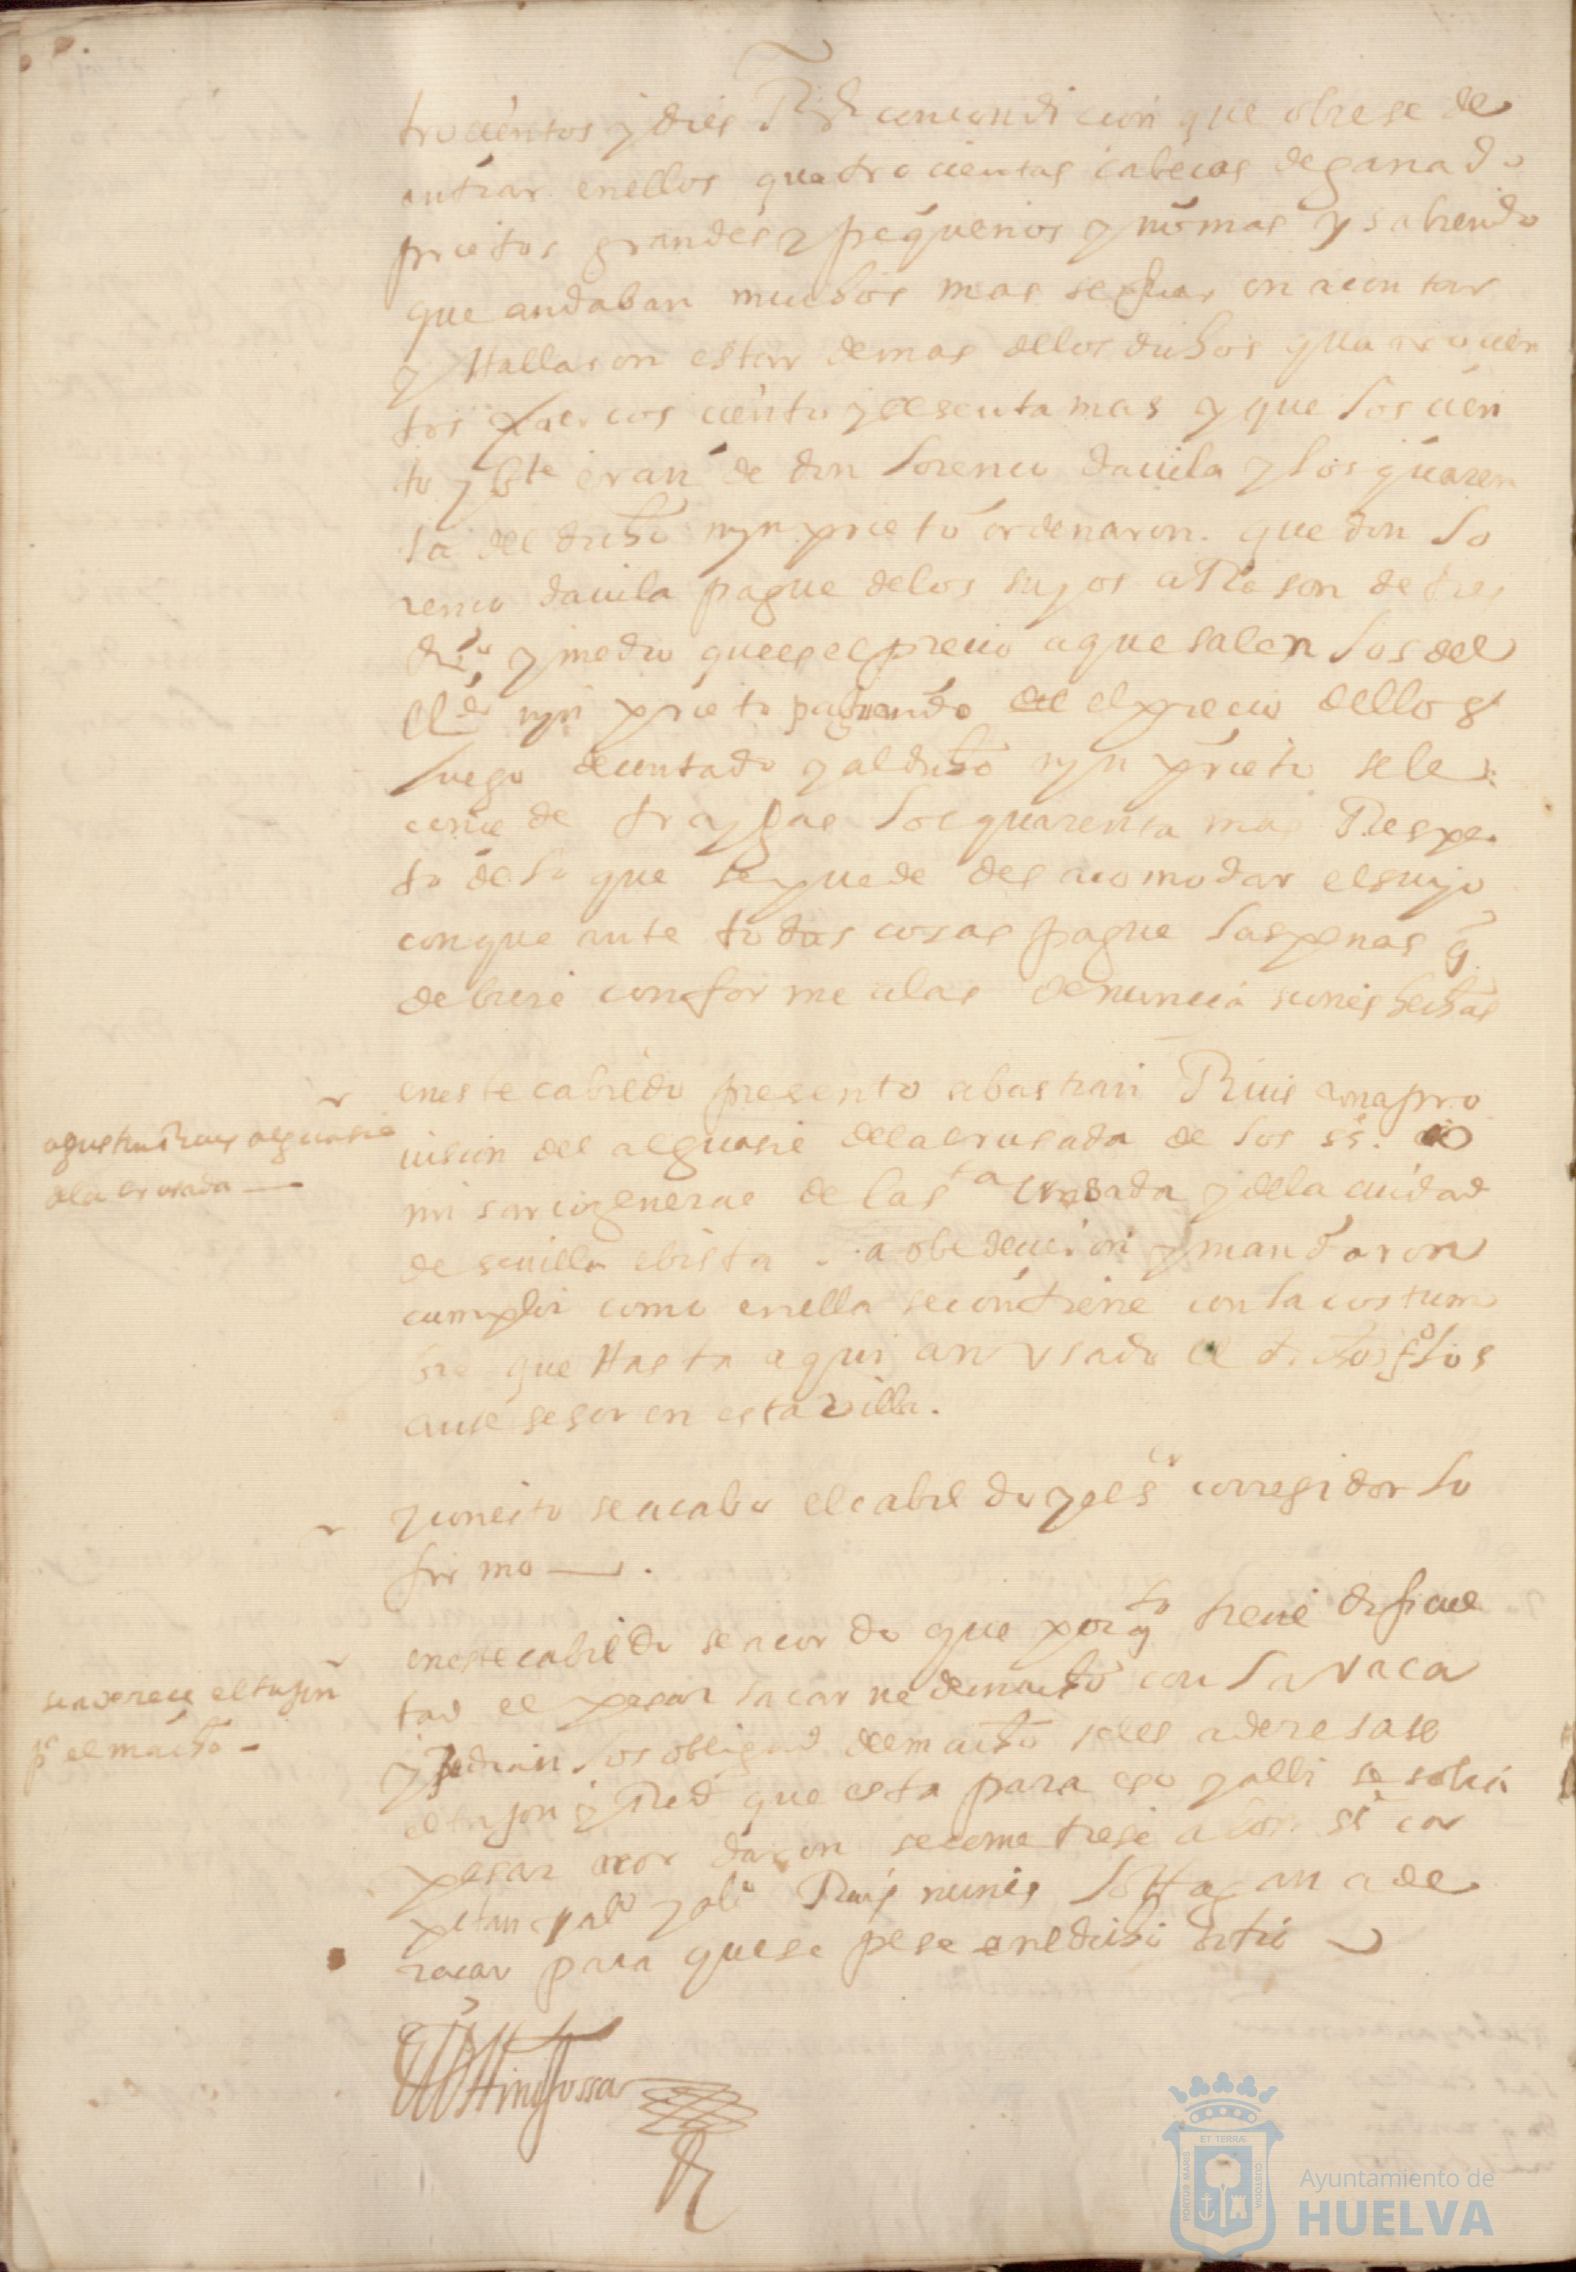 trocientos y dies Rs con condicion que obiese de
entrar enellos quatrocientas cabecas de ganado
prietos grandes y pequenios y no mas y sabiendo
que andaban muchos mas se fueron a contar
y Hallaron estar demas de los dichos quatrocien
tos puercos ciento y sesenta mas y que los cien
to y bte eran de don lorenco davila y los quaren
ta del dicho myn prieto ordenaron que don lo
renco davila pague de los suyos a Rason de tres
y medio que es el precio a que salen los del
myn prieto pagando el precio dellos
luego de contado y al dicho myn prieto se le
concede traygas los quarenta mas Respe
to de lo que se puede desacomodar el suyo
con que ante todas cosas pague las penas q
debiere conforme a las denunciasiones hechas
agustin Ruis alguasil
de la crusada
en este cabildo presento sebastian Ruis una pro
vision del alguasil de la crusada de los ss. co
misario general de la sta crusada y de la ciudad
de sevilla e bista la obedecieron y mandaron
cumplir como en ella se contiene con la costum
bre que Hasta aqui an usado el dicho ofo los
antesesor en esta villa.
y con esto se acabo el cabildo y el sor corregidor lo
firmo
se aderece el tajon
pa el macho
en este cabildo se acordo que por qto tiene deficul
tad el pesar la carne de macho con la vaca
y pedian los obligados del macho se les aderesase
el tajon y Red que esta para eso y alli se solia
pesar acordaron se cometiese a
Ruis nunes lo Hagan ade
racar para que se pese en el dicho sitio
ET TERRÆ
PORTUS MARIS
CUSTODIA
Ayuntamiento de
HUELVA